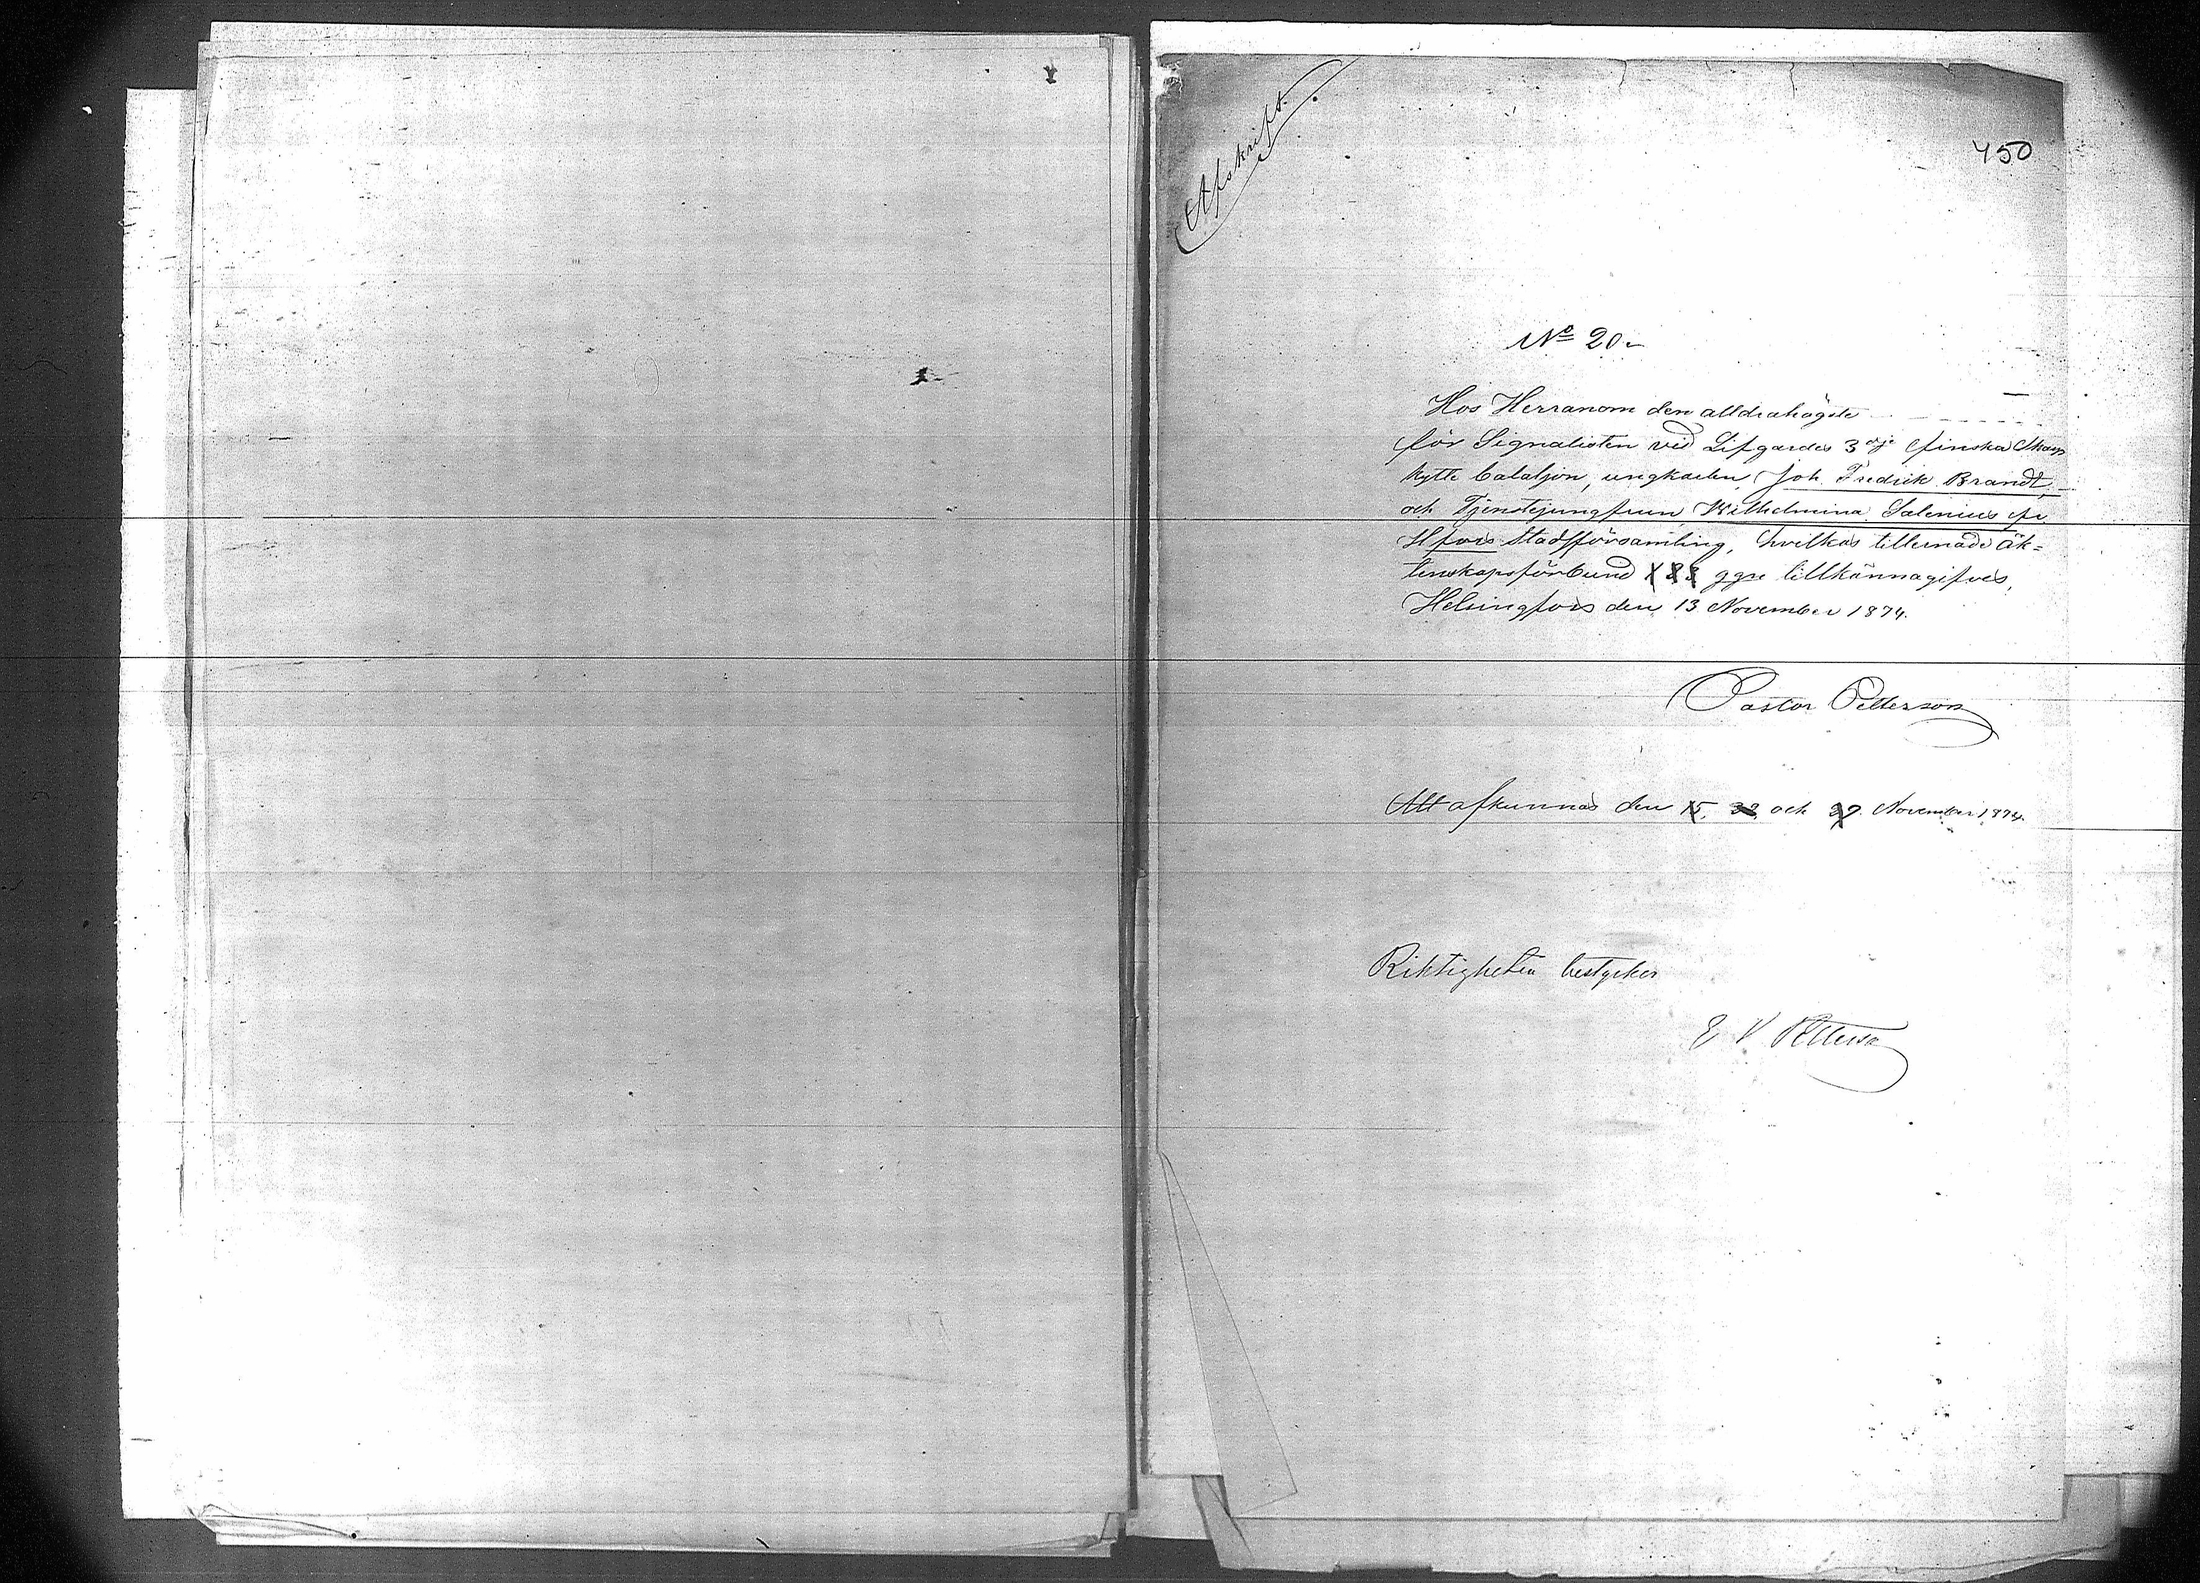 Afskrift.
450
No 20.
Hos Herranom den alldrahögste
för Signalisten vid Lifgardes 3dje finska Skarp
skytte bataljon, ungkarlen Joh. Fredrik Brandt,
och Tjenstejungfrun Wilhelmina Salenius fr.
Hfors Stadsförsamling, hvilkas tillernade äk=
tenskapsförbund 1 2 3 ggr tillkännagifves,
Helsingfors den 13 November 1874.
Pastor Petterson
Att afkunnas den 15, 22 och 29 November 1874.
Riktigheten bestyrker
E V Petterson